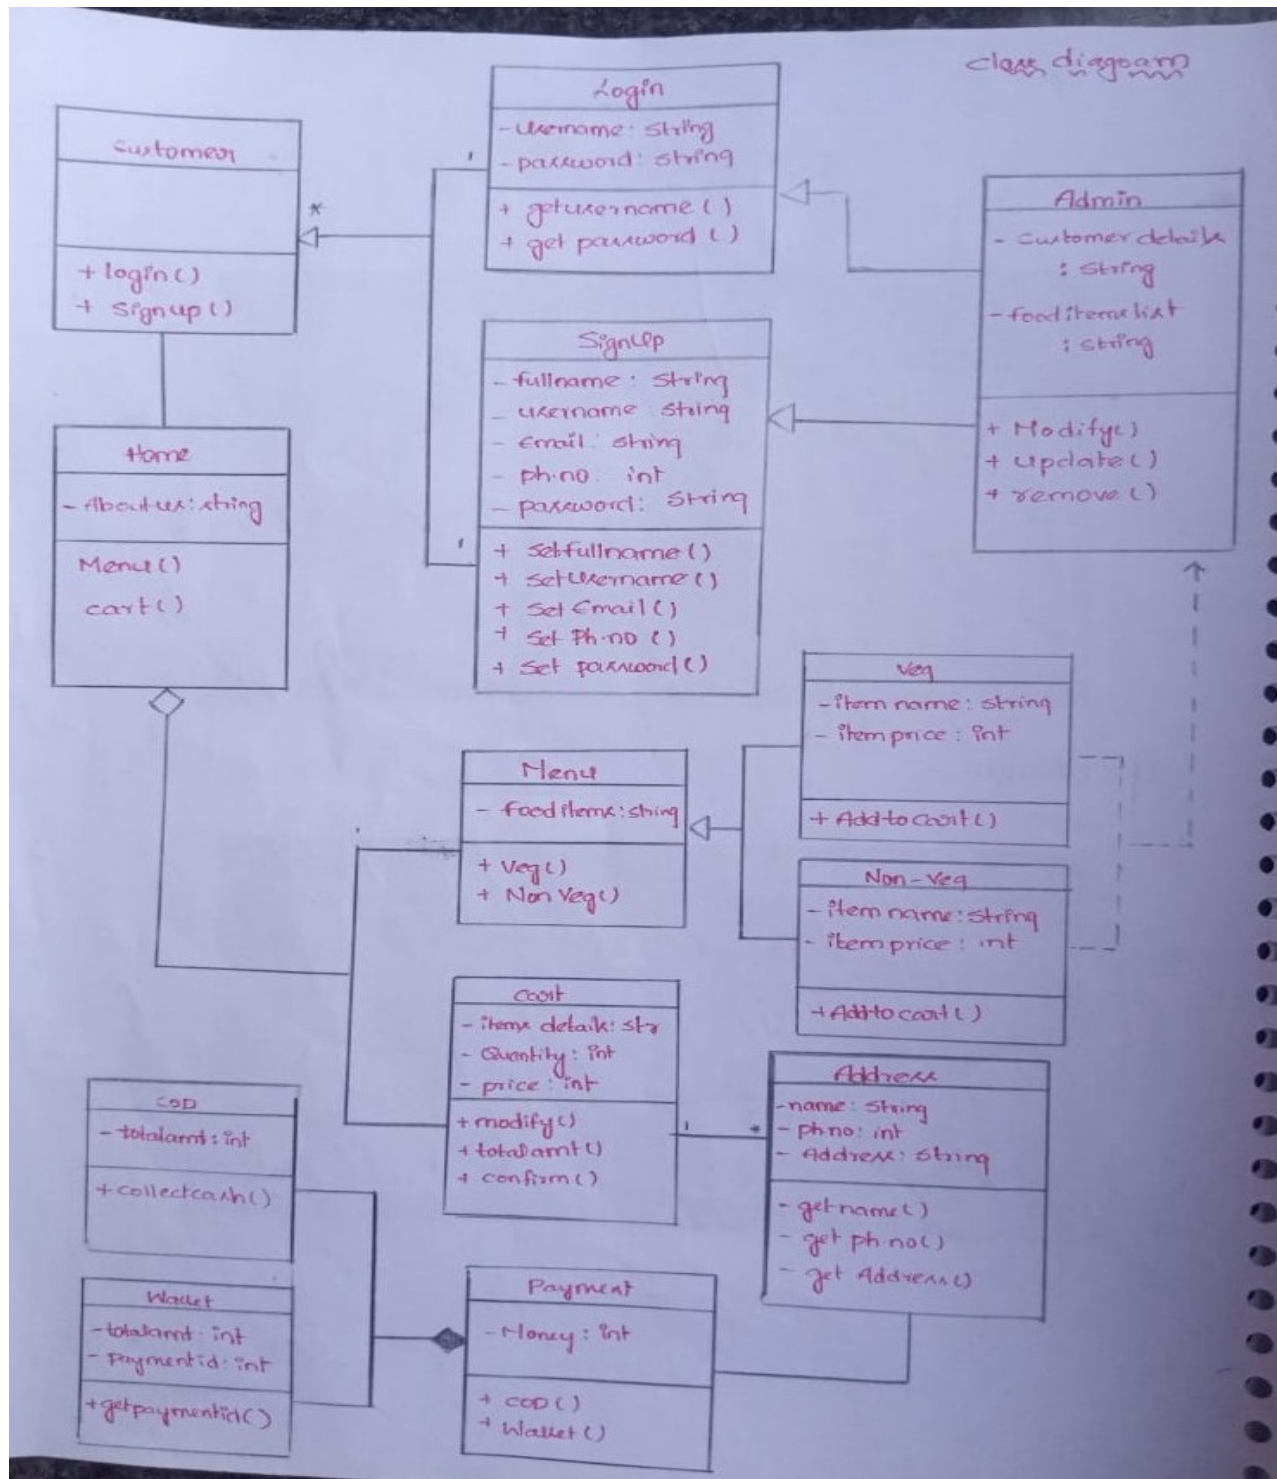 class diagram
Customer
+ login()
+ Signup()
*
Login
- username: String
- password: String
+ getusername()
+ get password ()
1
Admin
- Customer details
: String
- food items list
: String
+ Modify()
+ update()
+ remove()
SignUp
- fullname: String
- username String
- Email: String
- ph.no. int
- password: String
+ setfullname()
+ setusername()
+ Set Email()
+ Set Ph.no ()
+ Set password()
1
Home
- Aboutus: string
Menu()
cart()
Veg
- item name: string
- item price: int
+ Add to cart()
Menu
- food items: string
+ Veg()
+ Non Veg()
Non-Veg
- item name: string
- item price: int
+ Add to cart()
Cart
- items details: str
- Quantity: int
- price: int
+ modify()
+ totalamt()
+ confirm()
1
*
Address
- name: String
- ph.no: int
- Address: String
- getname()
- get ph.no()
- get Address()
COD
- totalamt: int
+ collectcash()
Wallet
- totalamt: int
- Paymentid: int
+ getpaymentid()
Payment
- Money: int
+ COD()
+ Wallet()